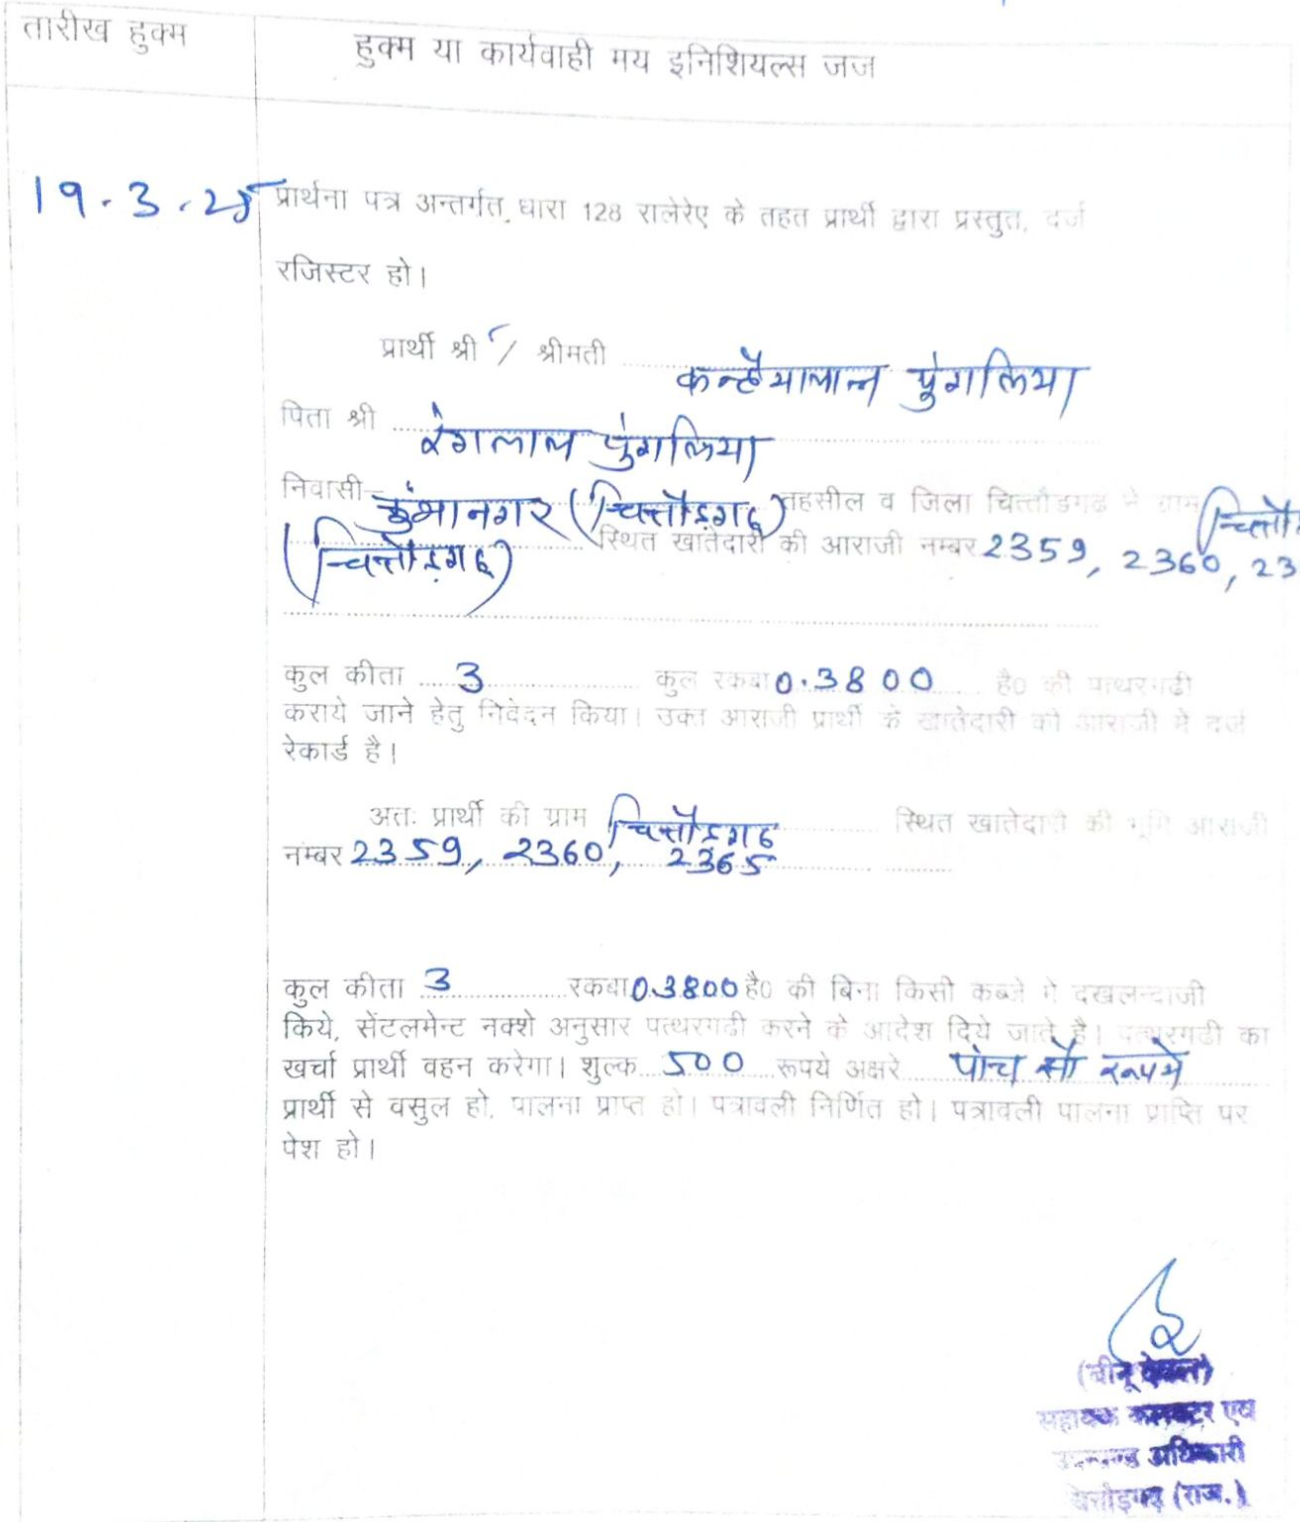 तारीख हुक्म
हुक्म या कार्यवाही मय इनिशियल्स जज
19.3.25 प्रार्थना पत्र अन्तर्गत धारा 128 रालेरेए के तहत प्रार्थी द्वारा प्रस्तुत, दर्ज
रजिस्टर हो।
प्रार्थी श्री / श्रीमती कन्हैयालाल पुंगलिया
पिता श्री रंगलाल पुंगलिया
निवासी कुंभानगर (चित्तौड़गढ़) तहसील व जिला चित्तौडगढ ने ग्राम
(चित्तौड़गढ़) स्थित खातेदारी की आराजी नम्बर 2359, 2360, 23
कुल कीता 3 कुल रकबा 0.3800 है0 की पत्थरगढी
कराये जाने हेतु निवेदन किया। उक्त आराजी प्रार्थी के खातेदारी की आराजी में दर्ज
रेकार्ड है।
अतः प्रार्थी की ग्राम चित्तौड़गढ़ स्थित खातेदारी की भूमि आराजी
नम्बर 2359, 2360, 2365
कुल कीता 3 रकबा 0.3800 है0 की बिना किसी कब्जे मे दखलन्दाजी
किये, सेंटलमेन्ट नक्शे अनुसार पत्थरगढी करने के आदेश दिये जाते है। पत्थरगढी का
खर्चा प्रार्थी वहन करेगा। शुल्क 500 रूपये अक्षरे पांच सौ रूपये
प्रार्थी से वसुल हो, पालना प्राप्त हो। पत्रावली निर्णित हो। पत्रावली पालना प्राप्ति पर
पेश हो।
(बीनू देवल)
सहायक कलक्टर एवं
उपखण्ड अधिकारी
चित्तौड़गढ़ (राज.)